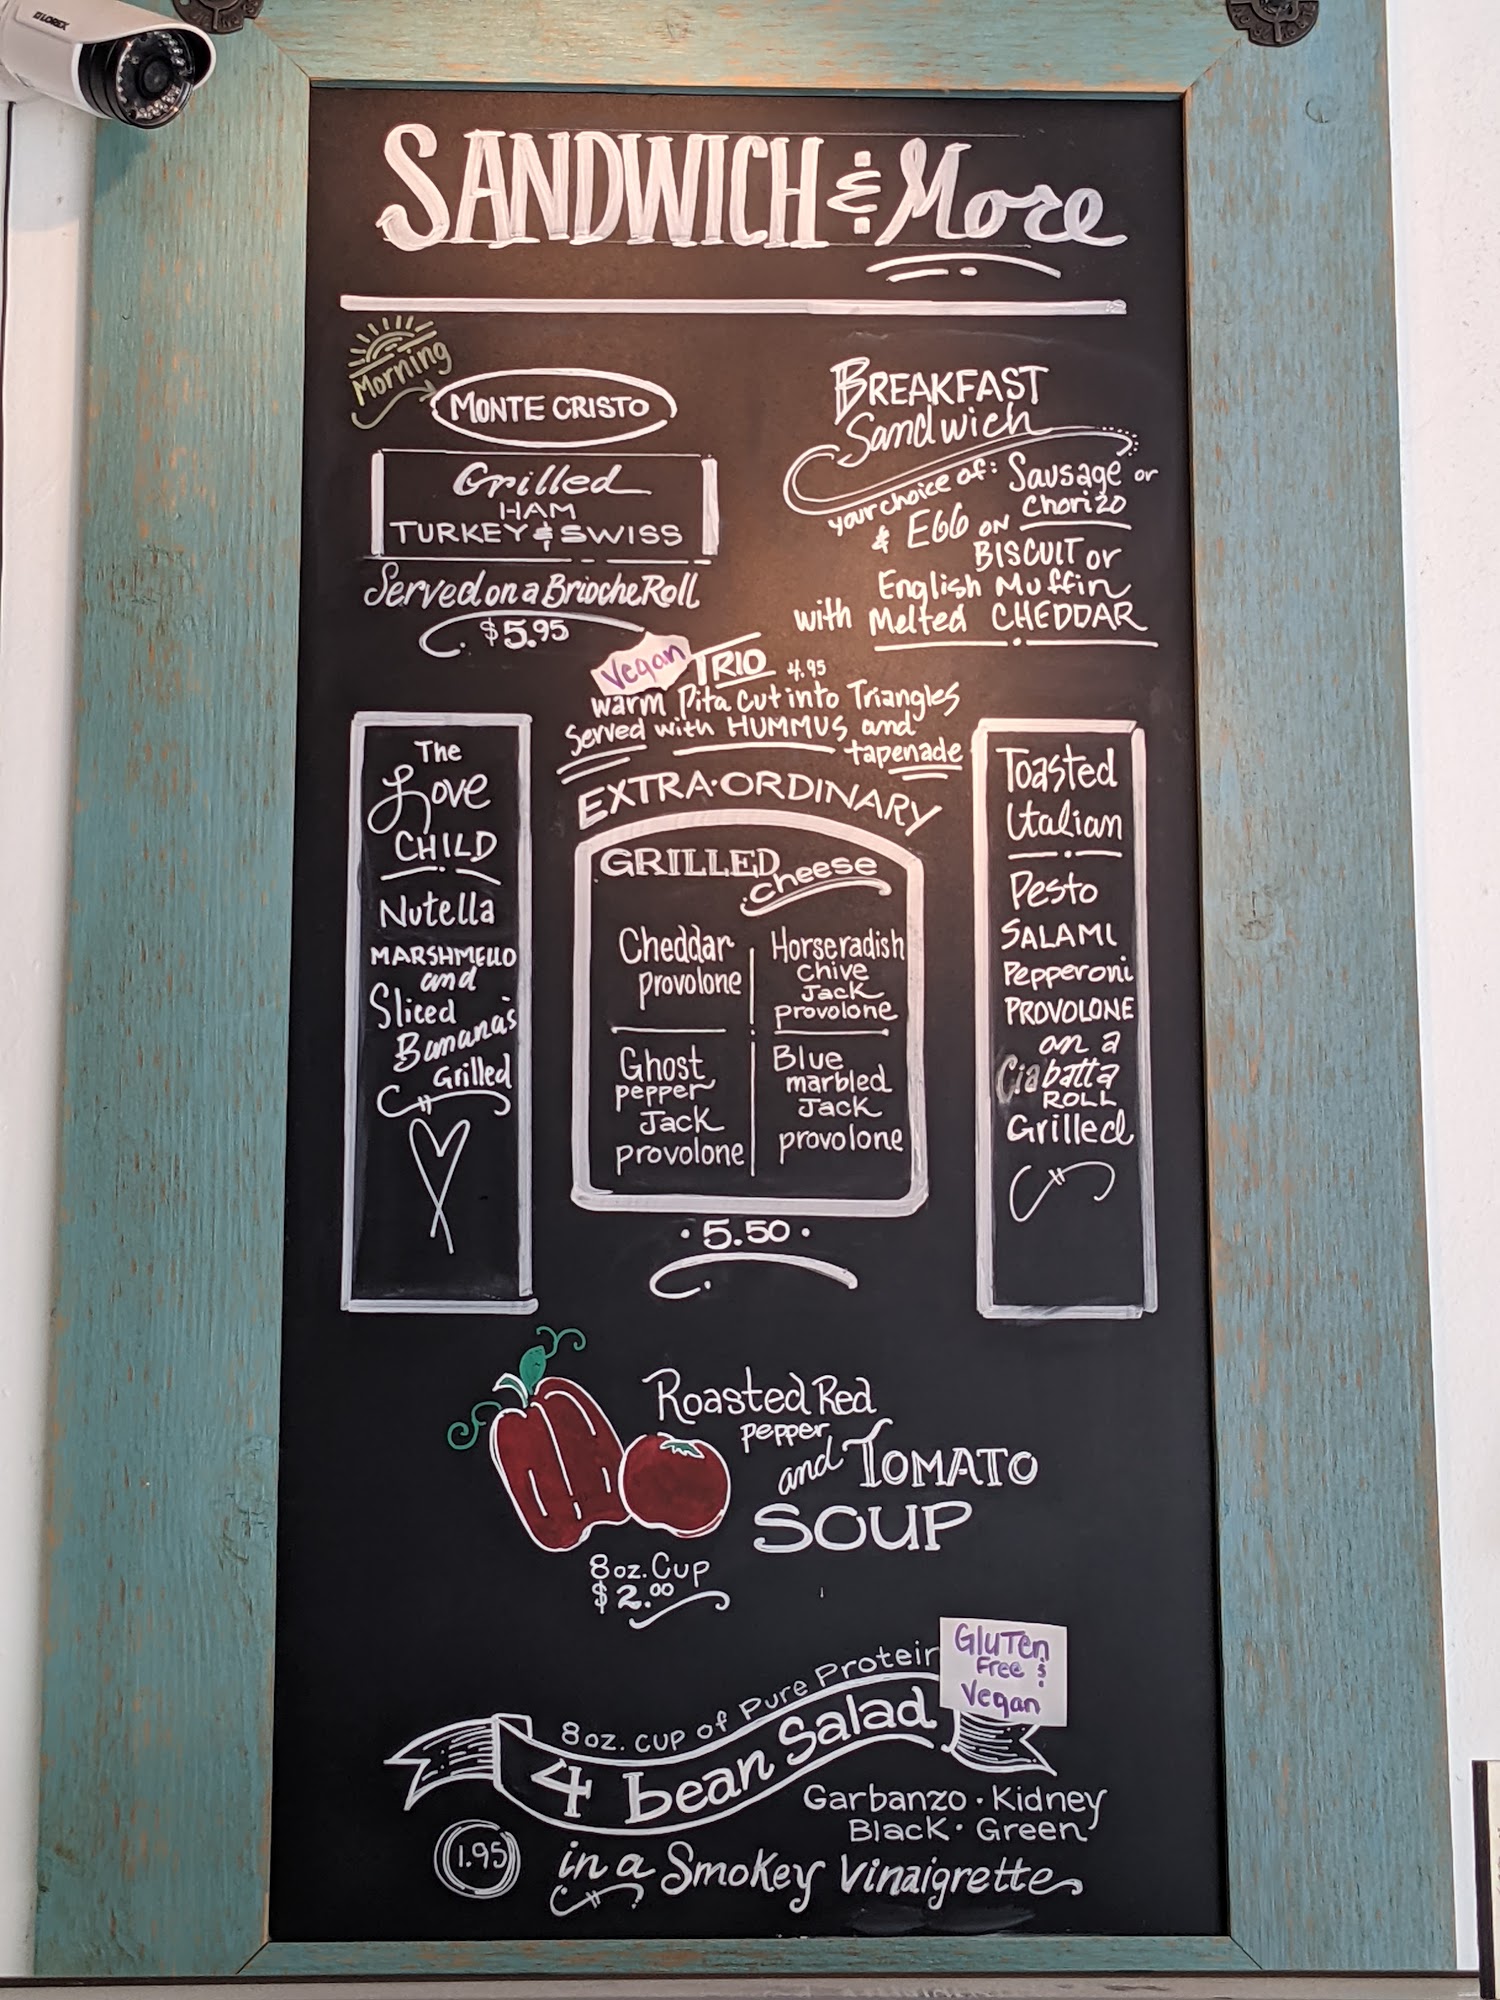 LOREX
SANDWICH & More
Morning
MONTE CRISTO
Grilled
HAM
TURKEY & SWISS
Served on a Brioche Roll
$5.95
BREAKFAST
Sandwich
your choice of: Sausage or
Chorizo
& EGG ON
BISCUIT or
English Muffin
with Melted CHEDDAR
Vegan TRIO 4.95
warm Pita cut into Triangles
Served with HUMMUS and
tapenade
The
Love
CHILD
Nutella
MARSHMELLO
and
Sliced
Bananas
Grilled
EXTRA·ORDINARY
GRILLED cheese
Cheddar
provolone
Horseradish
chive
Jack
provolone
Ghost
pepper
Jack
provolone
Blue
marbled
Jack
provolone
· 5.50 ·
Toasted
Italian
Pesto
SALAMI
Pepperoni
PROVOLONE
on a
Ciabatta
ROLL
Grilled
Roasted Red
pepper
and TOMATO
SOUP
8oz. Cup
$2.00
8oz. cup of Pure Protein
Gluten
Free &
Vegan
4 bean Salad
Garbanzo · Kidney
Black · Green
1.95
in a Smokey Vinaigrette